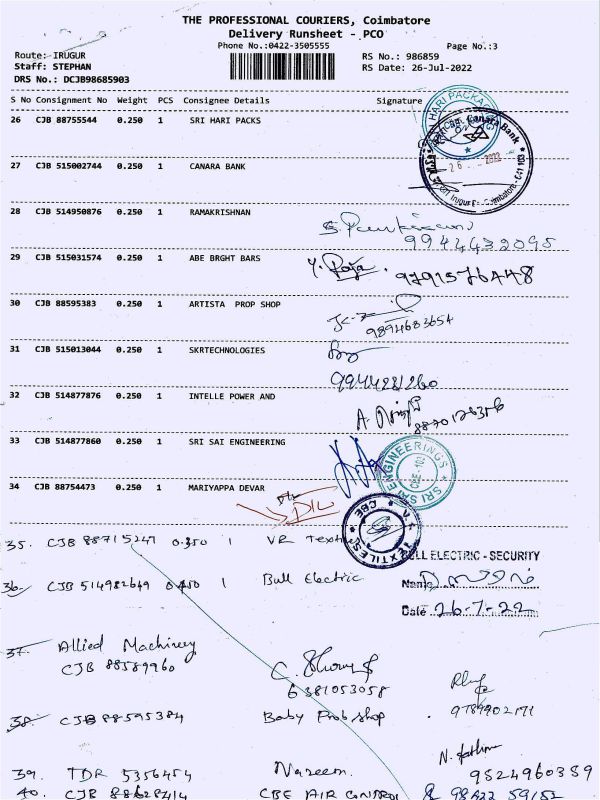 THE PROFESSIONAL COURIERS, Coimbatore
Delivery Runsheet - PCO
Phone No.:0422-3505555 Page No.:3
Route: IRUGUR RS No.: 986859
Staff: STEPHAN RS Date: 26-Jul-2022
DRS No.: DCJB98685903
S No Consignment No Weight PCS Consignee Details Signature
26 CJB 88755544 0.250 1 SRI HARI PACKS
27 CJB 515002744 0.250 1 CANARA BANK
Canara Bank
26 2022
28 CJB 514950876 0.250 1 RAMAKRISHNAN
9944432095
29 CJB 515031574 0.250 1 ABE BRGHT BARS
Y. Raja. 9791576448
30 CJB 88595383 0.250 1 ARTISTA PROP SHOP
9894683654
31 CJB 515013044 0.250 1 SKRTECHNOLOGIES
32 CJB 514877876 0.250 1 INTELLE POWER AND
33 CJB 514877860 0.250 1 SRI SAI ENGINEERING
SRI SAI ENGINEERINGS
34 CJB 88754473 0.250 1 MARIYAPPA DEVAR
D/L
D/L
V.R TEXTILES CBE
35. CJB 88715247 0.350 1 VR Textiles
BULL ELECTRIC - SECURITY
36. CJB 514982649 1 Bull Electric
Name
Date 26-7-22
37. Allied Machinery
CJB 88589960
6381053058
38. CJB 88595384 Baby Prob shop
39. TDR 5356454 Nazeem. 9524960359
40. CJB 88628414 CBE AIR CONTROL